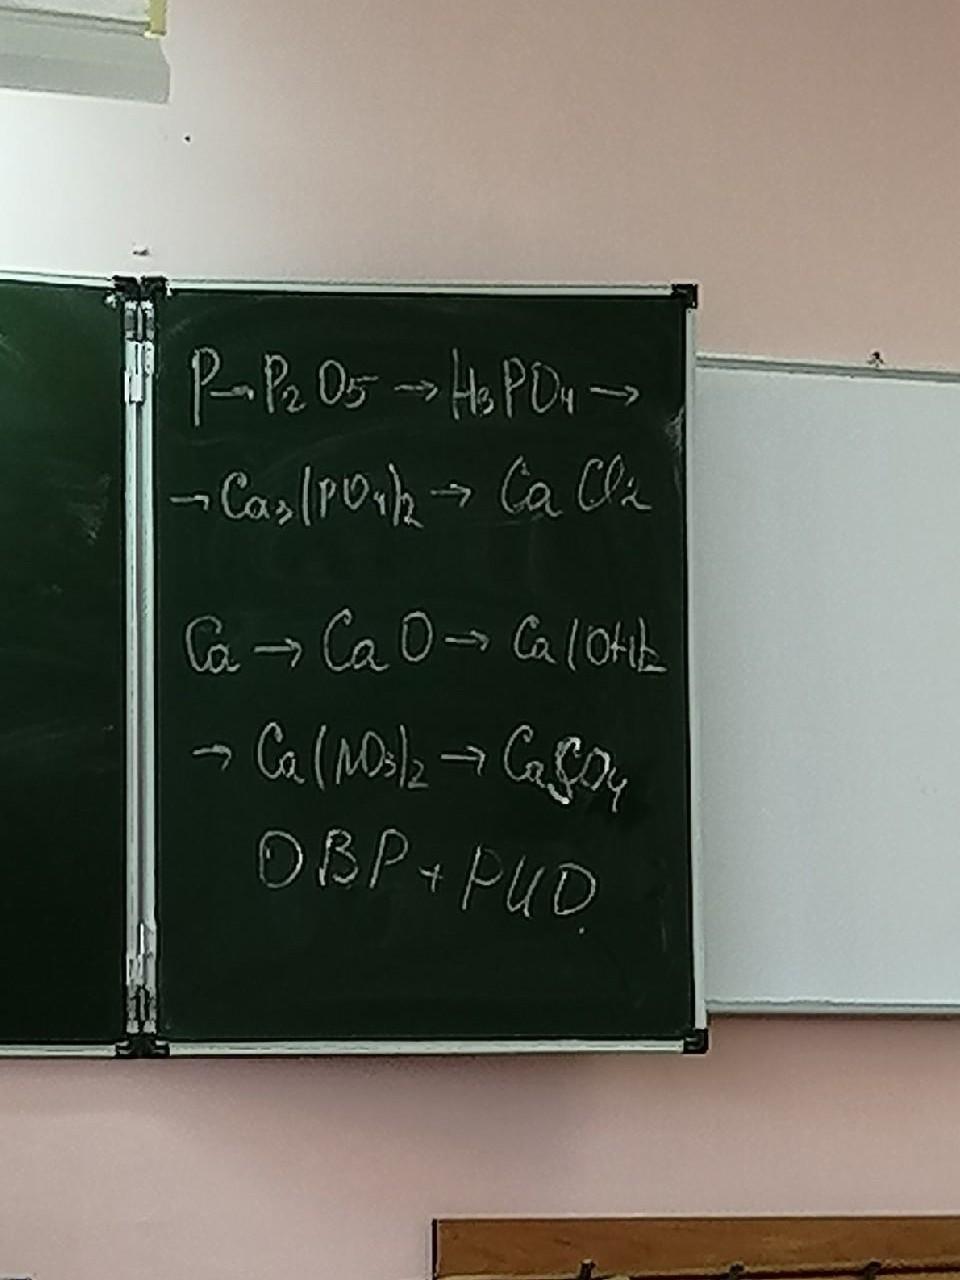 P→P₂O₅→H₃PO₄→
→Ca₃(PO₄)₂→CaCl₂
Ca→CaO→Ca(OH)₂
→Ca(NO₃)₂→CaSO₄
ОВР+РИО.